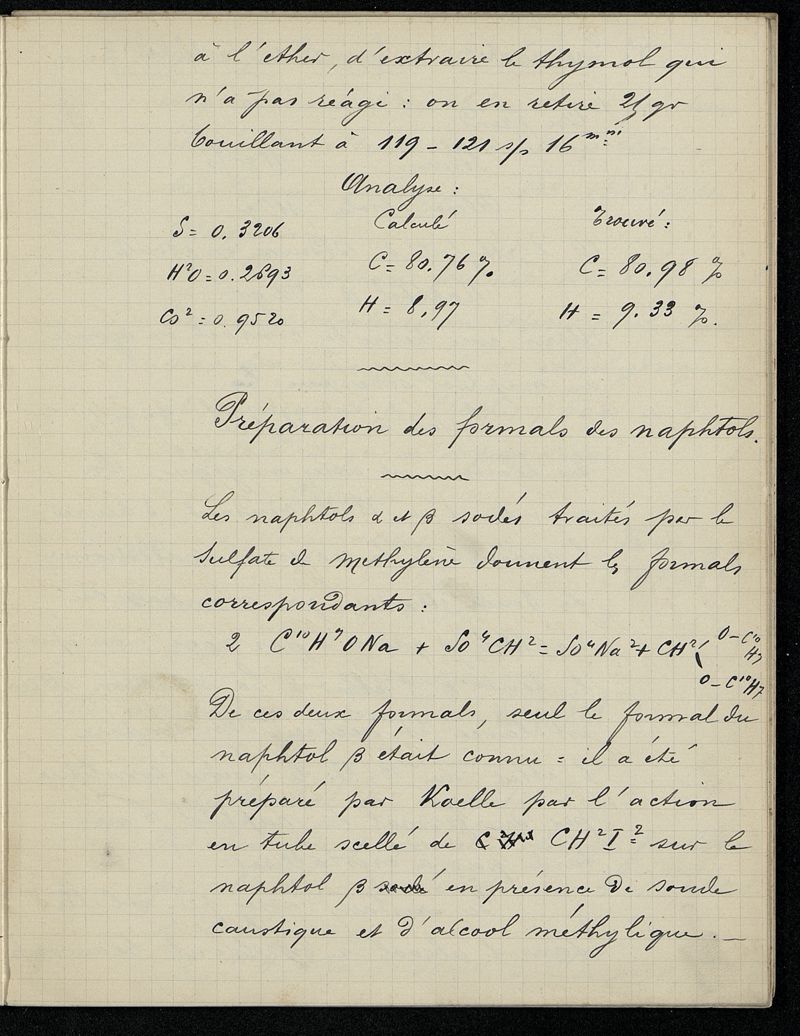 à l'ether, d'extraire le thymol qui
n'a pas réagi : on en retire gr
bouillant à 119 - 121 s/s 16 mm
Analyse :
S = 0.3206 Calculé Trouvé :
H²O = 0.2693 C = 80.76 % C = 80.98 %
CO² = 0.9520 H = 8,97 H = 9.33 %.
Préparation des formals des naphtols.
Les naphtols α et β sodés traités par le
Sulfate de methylène donnent les formals
correspondants :
2 C¹⁰H⁷ONa + SO⁴CH² = SO⁴Na² + CH² O-C¹⁰H⁷
O-C¹⁰H⁷
De ces deux formals, seul le formal du
naphtol β était connu = il a été
préparé par Koelle par l'action
en tube scellé de CH²I² sur le
naphtol β sodé en présence de soude
caustique et d'alcool méthylique. _